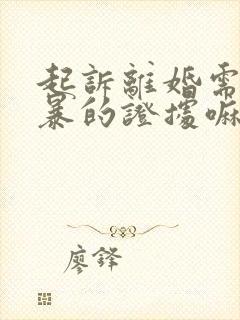 起訴離婚需
暴的證據嘛
廖鋒